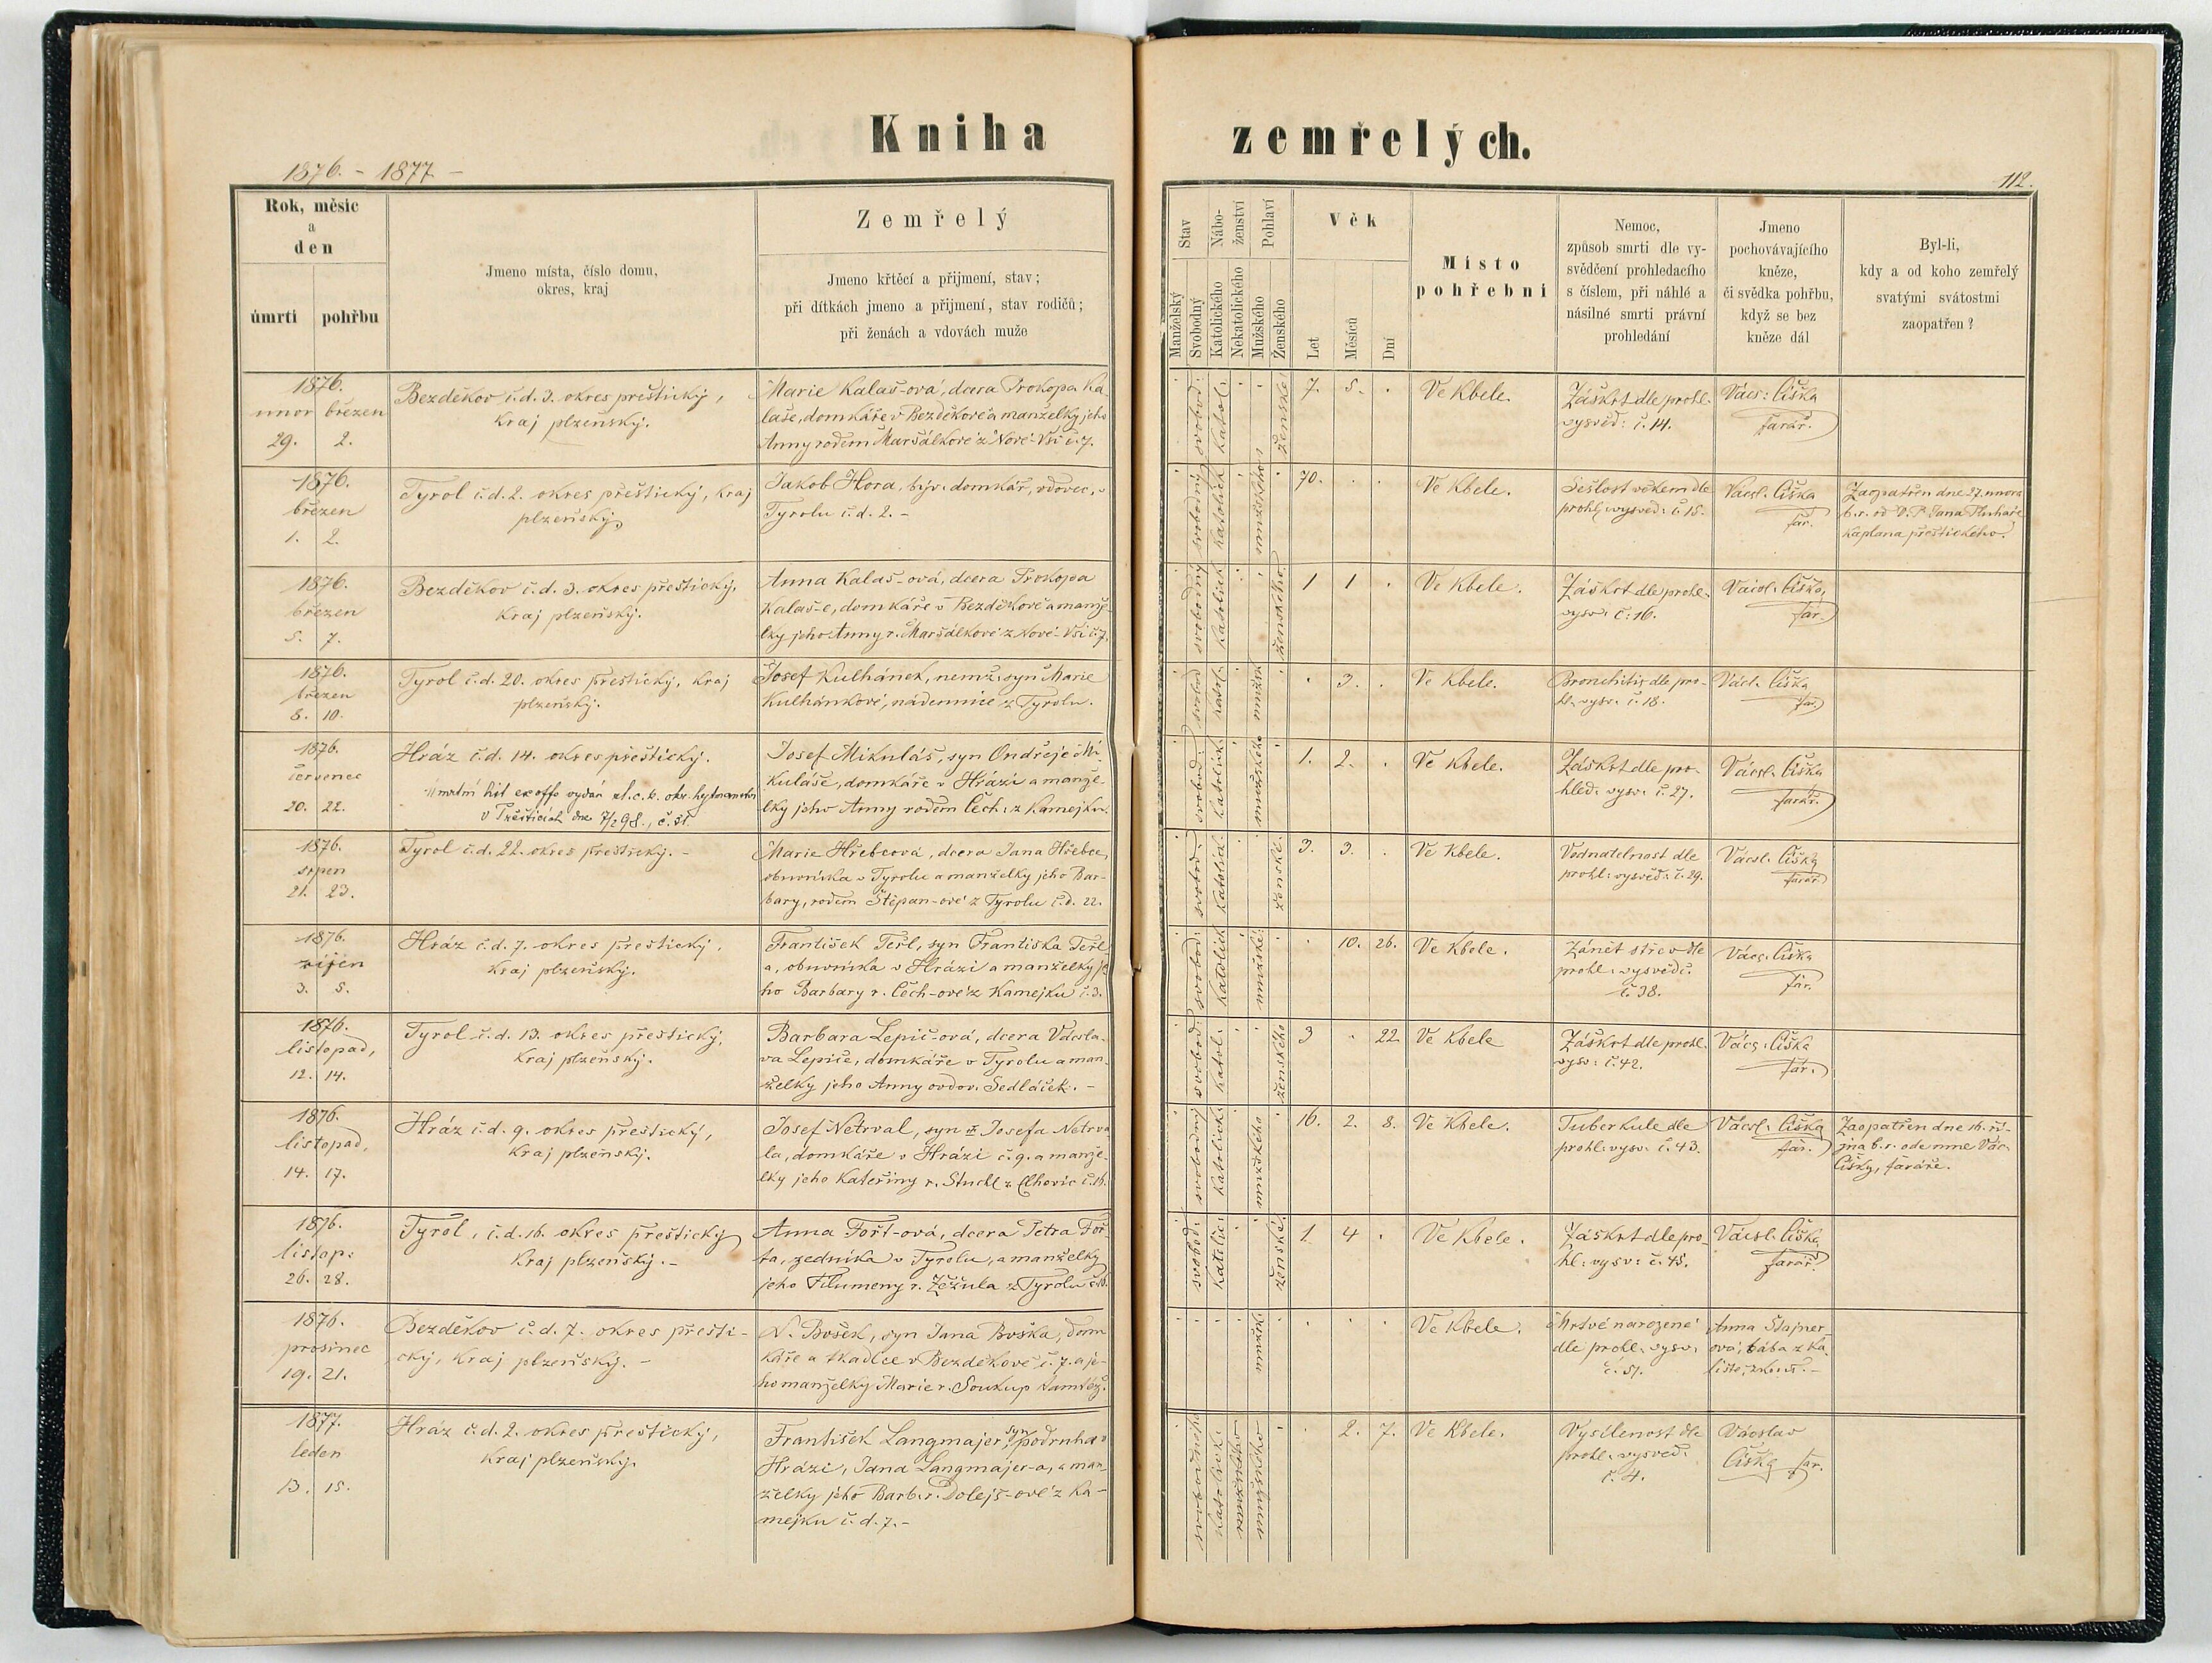 Kniha zemřelých.
1876. - 1877 -
112.
Rok, měsíc
a
den
úmrtí
pohřbu
Jmeno místa, číslo domu,
okres, kraj
Zemřelý
Jmeno křtěcí a přijmení, stav;
při dítkách jmeno a přijmení, stav rodičů;
při ženách a vdovách muže
Stav
Manželský
Svobodný
Nábo-
ženství
Katolického
Nekatolického
Pohlaví
Mužského
Ženského
Věk
Let
Měsíců
Dní
Místo
pohřební
Nemoc,
způsob smrti dle vy-
svědčení prohledacího
s číslem, při náhlé a
násilné smrti právní
prohledání
Jmeno
pochovávajícího
kněze,
či svědka pohřbu,
když se bez
kněze dál
Byl-li,
kdy a od koho zemřelý
svatými svátostmi
zaopatřen?
1876.
únor březen
29. 2.
Bezděkov č.d. 3. okres přeštický,
kraj plzeňský.
Marie Kalaš-ová, dcera Prokopa Ka-
laše, domkáře v Bezděkově a manželky jeho
Anny rodem Maršálkové z Nové-Vsi č. 7.
svobod:
katol:
ženské:
7. 5. .
Ve Kbele.
Záškrt dle prohl.
vysvěd: č. 14.
Vács: Čiška
farář.
1876.
březen
1. 2.
Tyrol č.d. 2. okres přeštický, kraj
plzeňský
Jakob Hora, býv. domkář, vdovec, v
Tyrolu č.d. 2. -
svobodný
katolick
mužského
70. . .
Ve Kbele.
Sešlost věkem dle
prohl. vysvěd: č. 15.
Vácsl. Čiška
far.
Zaopatřen dne 27. února
b.r. od D.P. Jana Pluhaře
kaplana přeštického.
1876.
březen
5. 7.
Bezděkov č.d. 3. okres přeštický,
kraj plzeňský.
Anna Kalaš-ová, dcera Prokopa
Kalaš-e, domkáře v Bezděkově a manže-
lky jeho Anny r. Maršálkové z Nové-Vsi č. 7.
svobodný
katolick
ženského
1 1 .
Ve Kbele.
Záškrt dle prohl.
vysv: č: 16.
Václ. Čiška,
far.
1876.
březen
8. 10.
Tyrol č.d. 20. okres přeštický, kraj
plzeňský.
Josef Kulhánek, nemž. syn Marie
Kulhánkové, nádennice z Tyrolu.
svobod
katol.
mužsk
. 3. .
Ve Kbele.
Bronchitis dle pro-
hl. vysv: č. 18.
Václ. Čiška
far.
1876.
červenec
20. 22.
Hráz č.d. 14. okres přeštický.
Úmrtní list ex offo vydán sl. c. k. okr. hejtmanstvu
v Přešticích dne 7/2 98., č. 51.
Josef Mikuláš, syn Ondřeje Mi-
kuláše, domkáře v Hrázi a manže-
lky jeho Anny rodem Čech: z Kamejku.
svobod:
katolick
mužského
1. 2. .
Ve Kbele.
Záškrt dle pro-
hled: vysv: č. 27.
Vácsl. Čiška
farář.
1876.
srpen
21. 23.
Tyrol č.d. 22. okres přeštický. -
Marie Hřebcová, dcera Jana Hřebce,
obuvníka v Tyrolu a manželky jeho Bar-
bary, rodem Štěpan-ové z Tyrolu č.d. 22.
svobod.
katolick
ženské.
3. 3. .
Ve Kbele.
Vodnatelnost dle
prohl: vysvěd: č. 29.
Vácsl. Čiška
farář.
1876.
říjen
3. 5.
Hráz č.d. 7. okres přeštický,
kraj plzeňský.
František Teřl, syn Františka Teřl-
a, obuvníka v Hrázi a manželky je-
ho Barbary r. Čech-ové z Kamejku č. 3.
svobod:
katolick
mužské:
. 10. 26.
Ve Kbele.
Zánět střev dle
prohl. vysvědč.
č. 38.
Vács. Čiška
far.
1876.
listopad,
12. 14.
Tyrol č.d. 13. okres přeštický,
kraj plzeňský.
Barbara Lepič-ová, dcera Václa-
va Lepiče, domkáře v Tyrolu a man-
želky jeho Anny ovdov. Sedláček. -
svobod:
katol:
ženského
3 . 22
Ve Kbele
Záškrt dle prohl.
vysv: č. 42.
Vács. Čiška
far.
1876.
listopad,
14. 17.
Hráz č.d. 9. okres přeštický,
kraj plzeňský.
Josef Netrval, syn Josefa Netrva-
la, domkáře v Hrázi č. 9. a manže-
lky jeho Kateřiny r. Stuchl z Elhovic č. 16.
svobodný
katolick.
mužského
16. 2. 8.
Ve Kbele.
Tuberkule dle
prohl. vysv: č. 43.
Vácsl. Čiška
far.
Zaopatřen dne 16. ří-
jna b.r. ode mne Vác.
Čišky, faráře.
1876.
listop:
26. 28.
Tyrol, č.d. 16. okres přeštický
kraj plzeňský. -
Anna Fořt-ová, dcera Petra Foř-
ta, zedníka v Tyrolu, a manželky
jeho Filumeny r. Žežula z Tyrolu č. 16.
svobod:
katolic:
ženské:
1 4 .
Ve Kbele.
Záškrt dle pro-
hl: vysv: č. 45.
Vácsl. Čiška
farář.
1876.
prosinec
19. 21.
Bezděkov č.d. 7. okres přešti-
cký, kraj plzeňský. -
N. Bošek, syn Jana Boška, dom-
káře a tkadlce v Bezděkově č. 7. a je-
ho manželky Marie r. Soukup tamtéž.
mužsk.
Ve Kbele.
Mrtvě narozené
dle prohl. vysv:
č. 51.
Anna Štajner-
ová, bába z Ka-
liště, zkouš. -
1877.
leden
13. 15.
Hráz č.d. 2. okres přeštický,
kraj plzeňský.
František Langmajer, syn podruha v
Hrázi, Jana Langmajer-a, a man-
želky jeho Barb. r. Dolejš-ové z Ka-
mejku č.d. 7. -
svobodného
katolick.
mužského
mužského
. 2. 7.
Ve Kbele.
Vysílenost dle
prohl. vysvěd.
č. 4.
Vácslav
Čiška far.